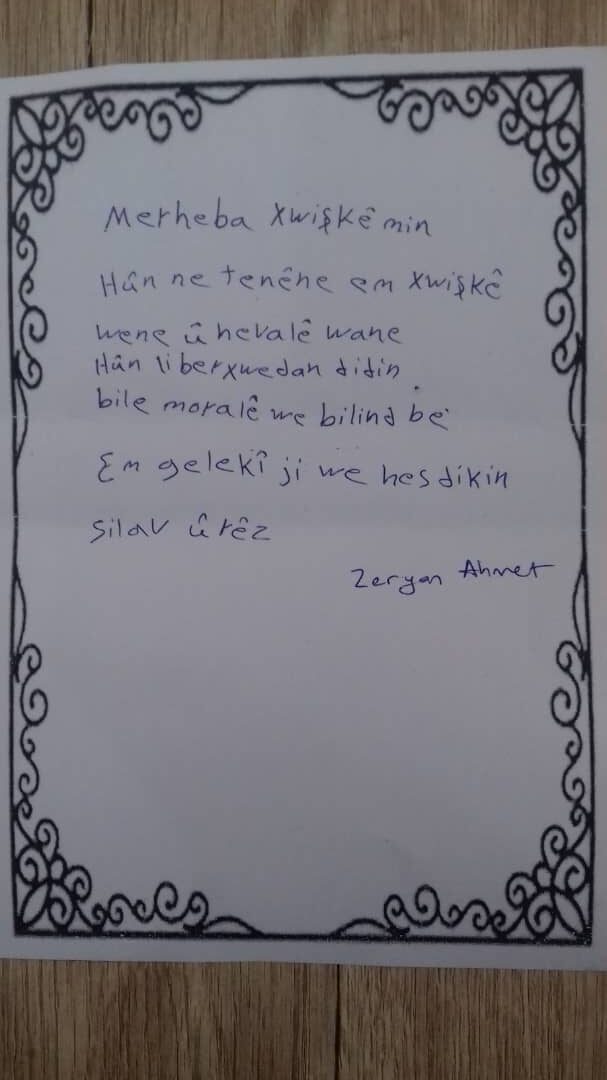 Merheba Xwişkê min
Hûn ne tenêne em xwişkê
wene û hevalê wane
Hûn li berxwedan didin
bile moralê we bilind be
Em gelekî ji we hes dikin
silav û rêz
Zeryan Ahmet